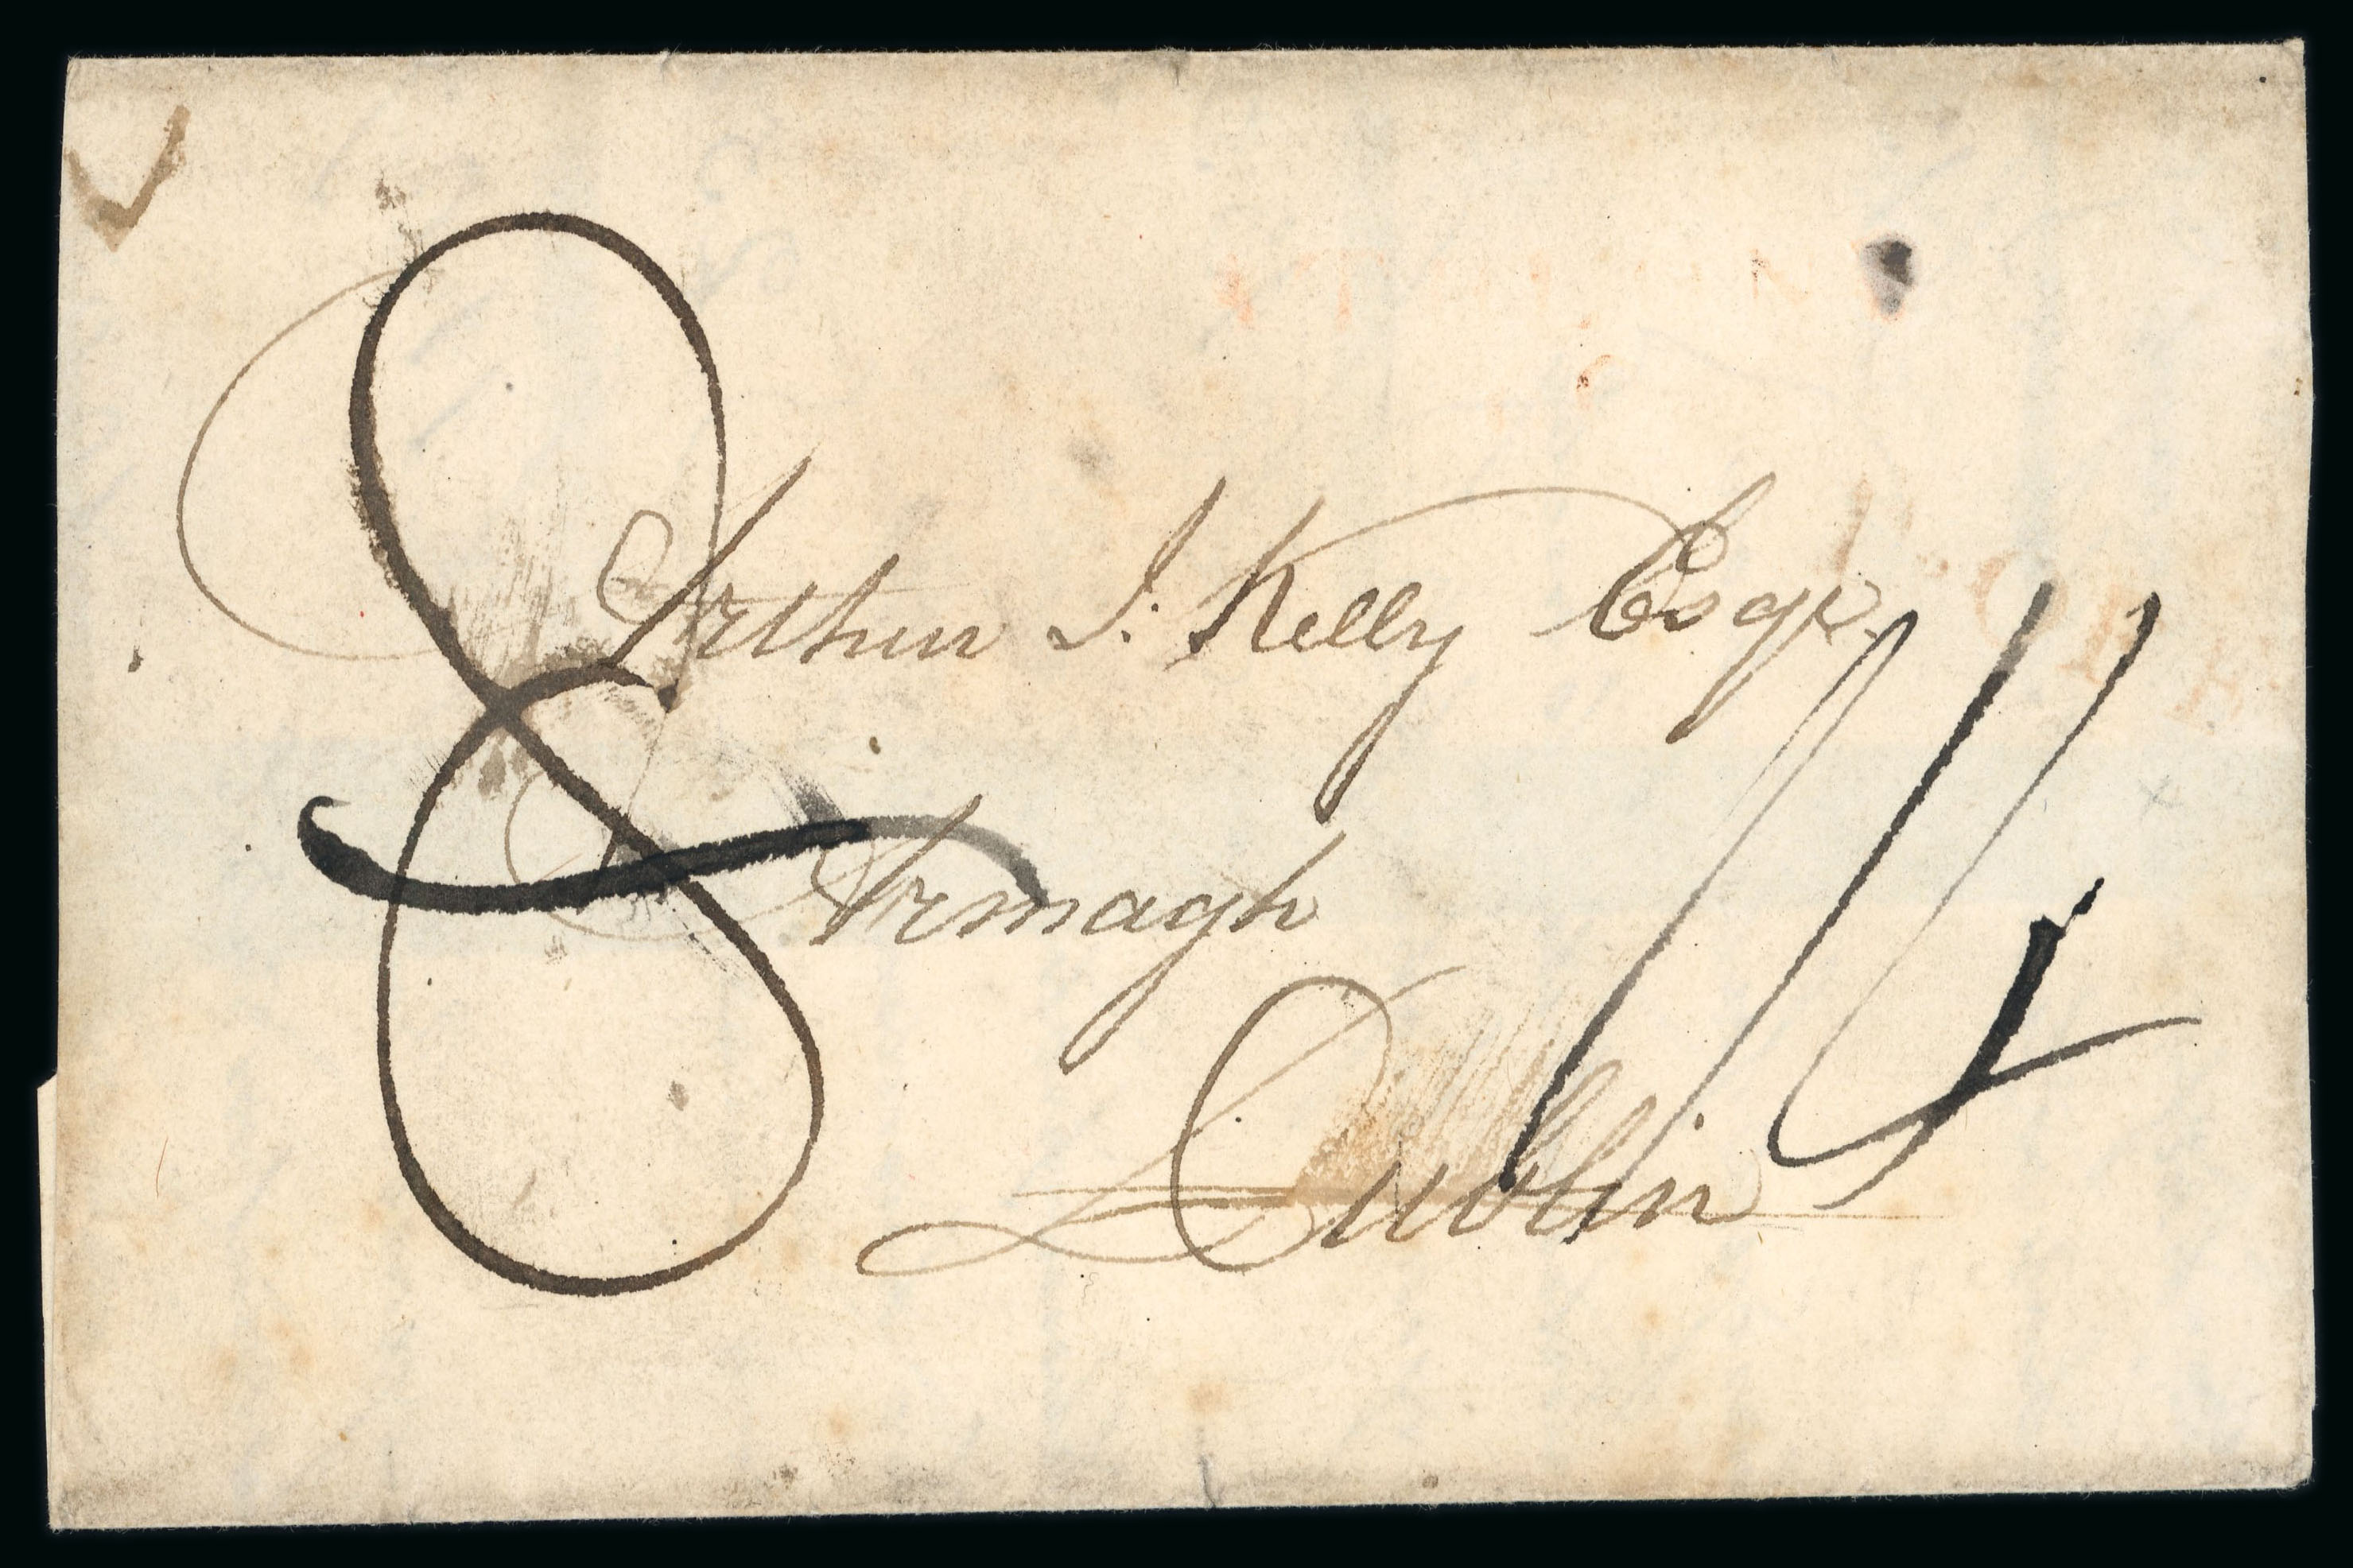 8
Arthur J. Kelly Esqr.
Armagh
Dublin